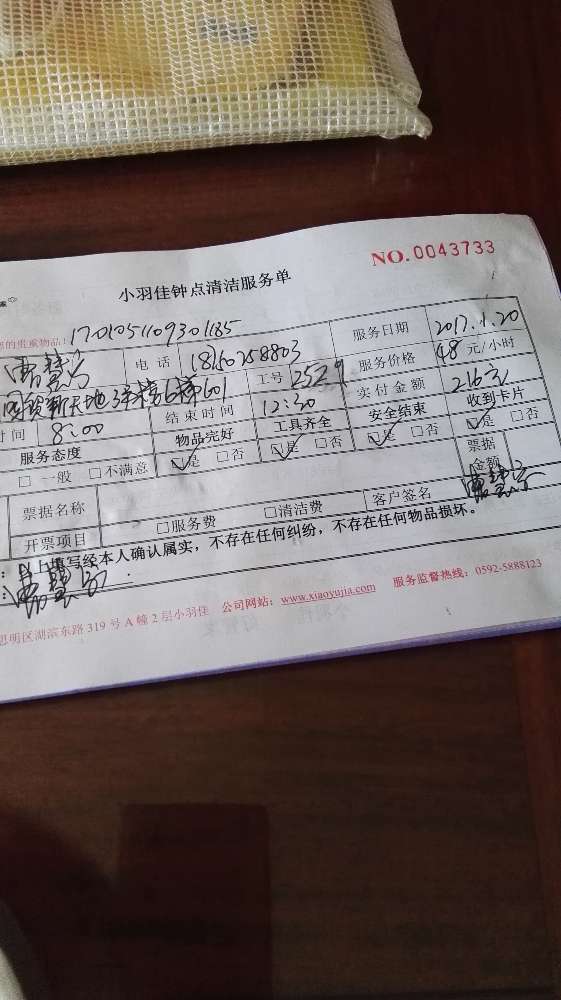 NO.0043733
小羽佳钟点清洁服务单
的贵重物品：1701051109301185
电话 18150258803 服务日期 2017.1.20
国贸新天地 601 工号 2529 服务价格 48 元/小时
时间 8:00 结束时间 12:30 实付金额 216元
服务态度 物品完好 工具齐全 安全结束 收到卡片
□ 一般 □不满意 ☑是 □否 ☑是 □否 ☑是 □否 ☑是 □否
票据名称 票据金额
开票项目 □服务费 □清洁费 客户签名
：以上填写经本人确认属实，不存在任何纠纷，不存在任何物品损坏。
思明区湖滨东路 319 号 A 幢 2 层小羽佳 公司网站：www.xiaoyujia.com 服务监督热线：0592-5888123